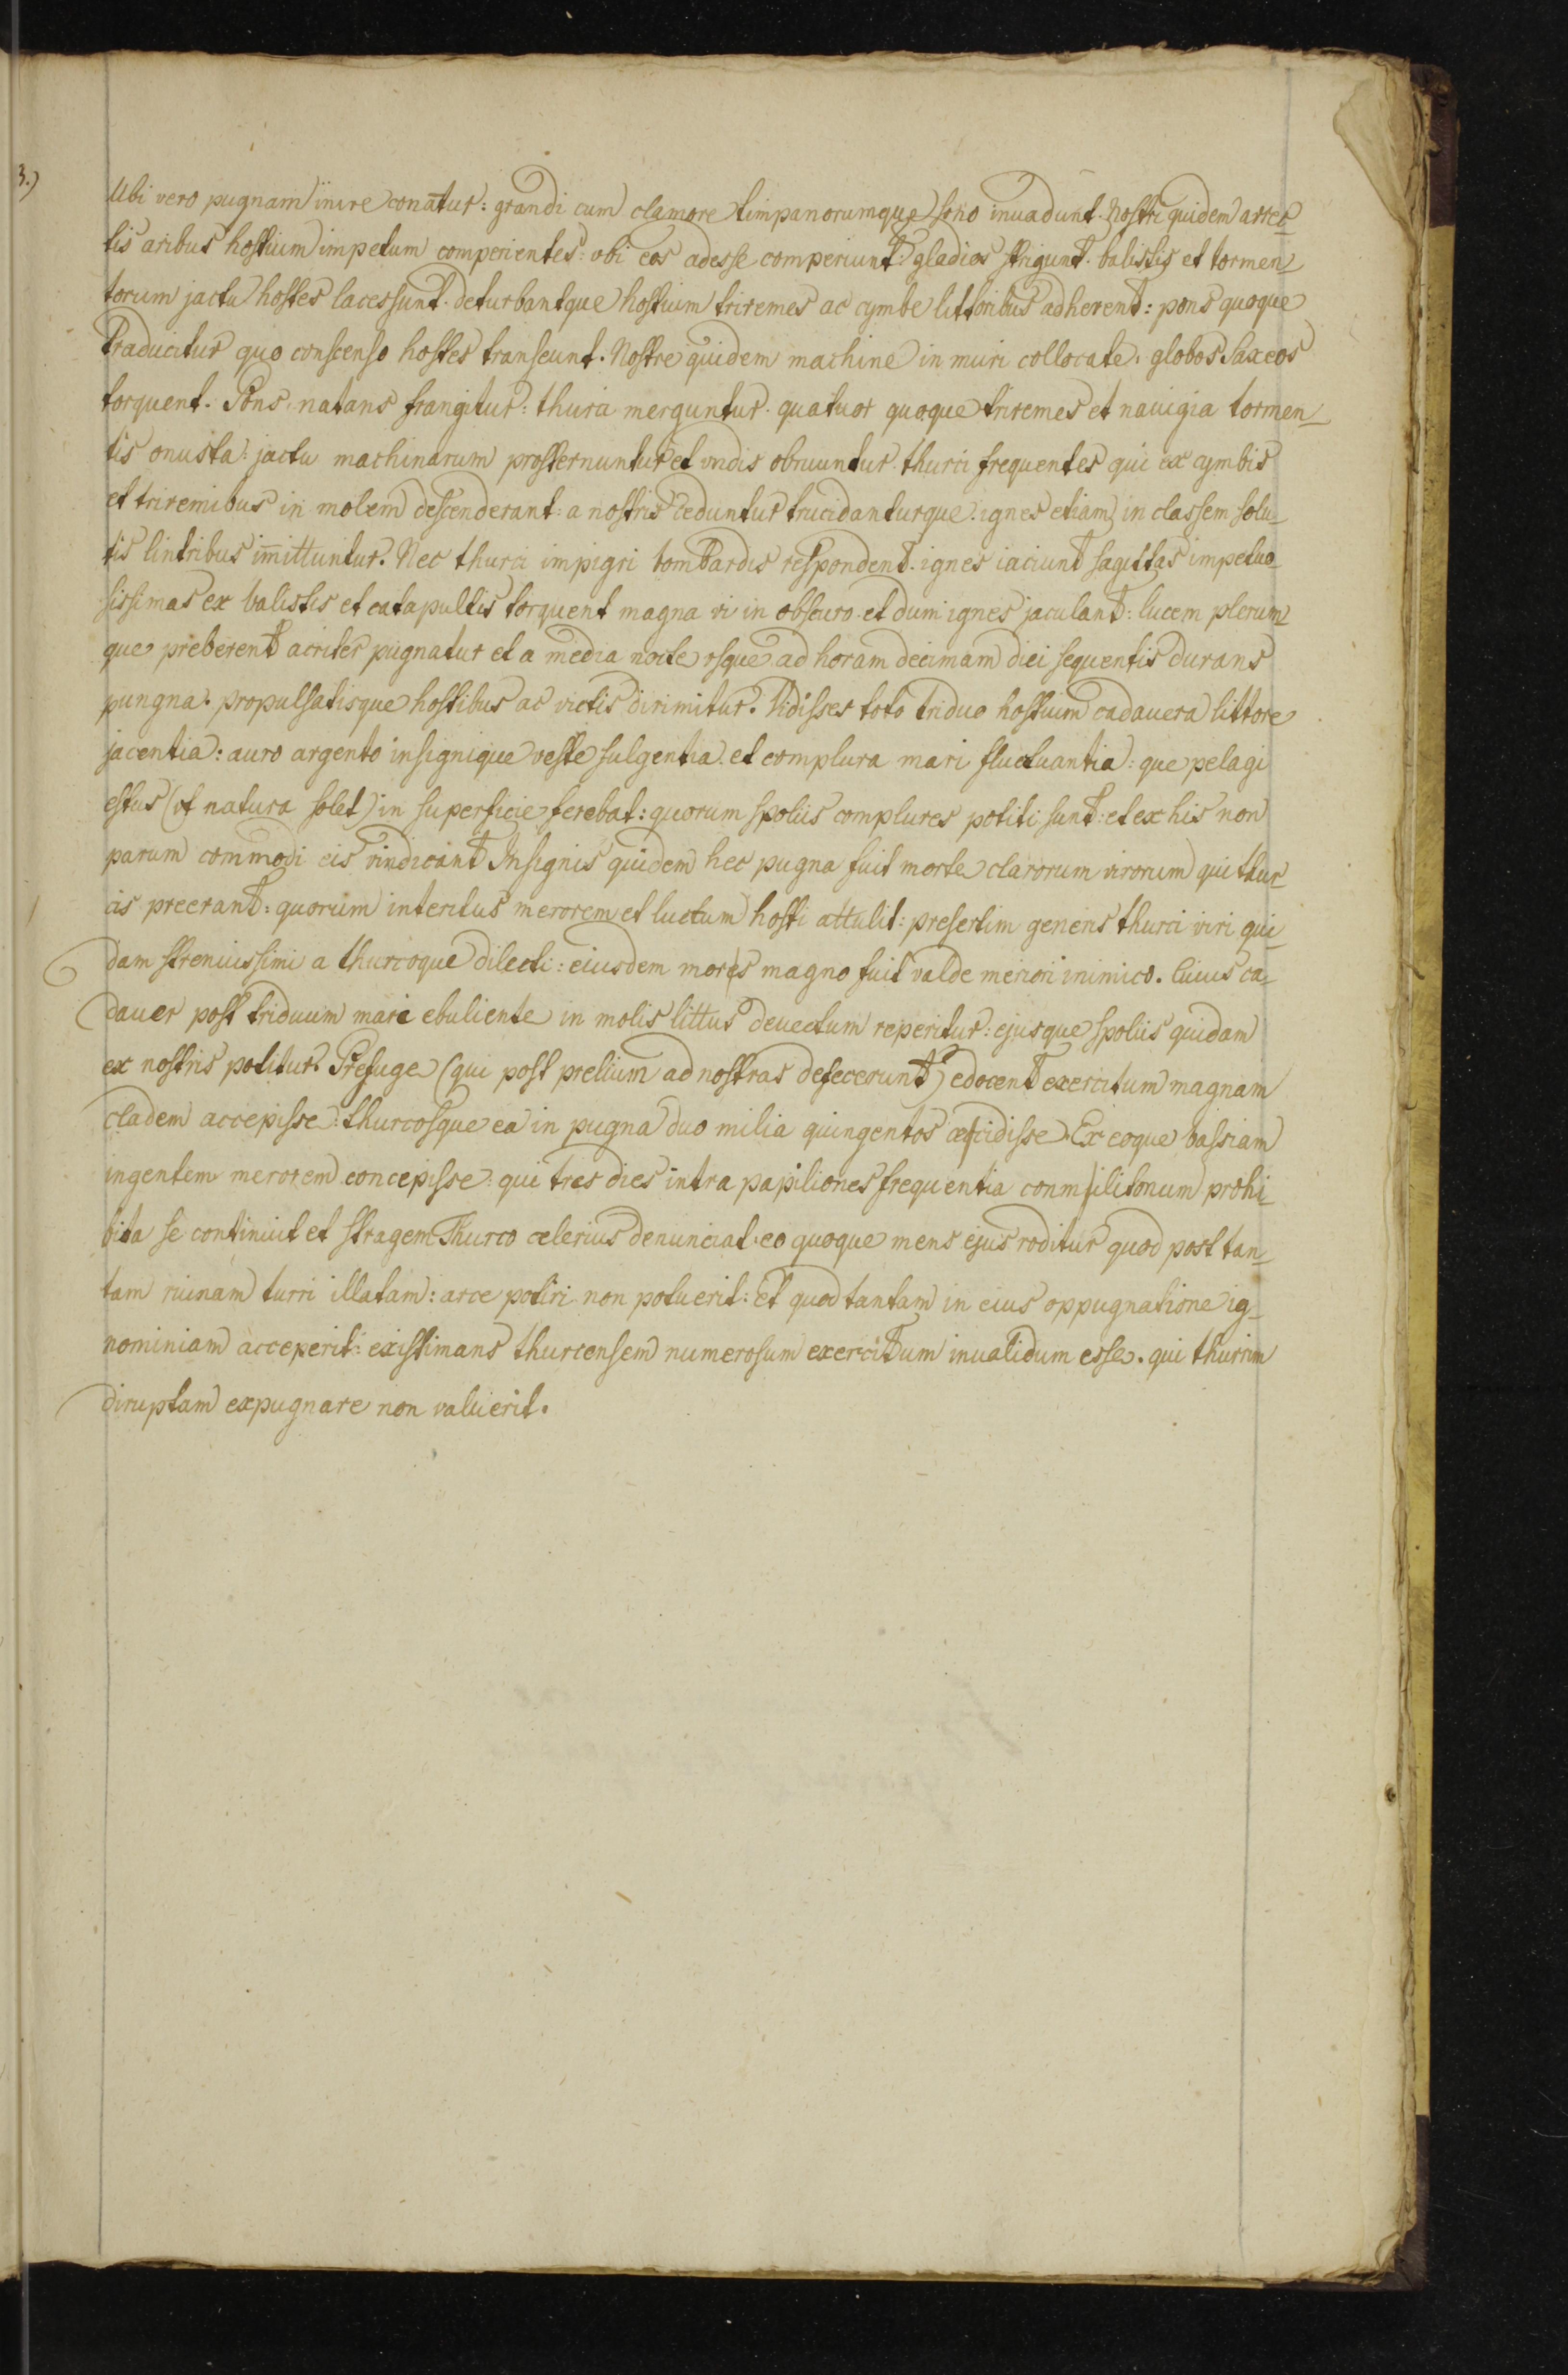 3.)
Ubi vero pugnam inire conātur: grandi cum clamore timpanorumque sono inuadunt. Nostri quidem arrec-
tis aribus hostium impetum comperientes: vbi eos adesse comperiunt: gladios strigunt. balistis et tormen-
torum jactu hostes lacessunt. deturbantque hostium triremes ac cymbe littoribus adherent: pons quoque
traducitur quo conscenso hostes transeunt. Nostre quidem machine in muri collocate. globos Saxeos
torquent. Pons natans frangitur: thurci merguntur. quatuor quoque triremes et nauigia tormen-
tis onusta: jactu machinarum prosternuntur et vndis obruuntur. thurci frequentes qui ex cymbis
et triremibus in molem descenderant: a nostris ceduntur trucidanturque. ignes etiam in classem solu-
tis lintribus im̄ittuntur. Nec thurci impigri bombardis respondent. ignes iaciunt sagittas impetuo-
sissimas ex balistis et catapultis torquent magna vi in obscuro. et dum ignes jaculant: lucem plerum
que preberent acriter pugnatur et a media nocte vsque ad horam decimam diei sequentis durans
pungna. propulsatisque hostibus ac victis dirimitur. Vidisses toto triduo hostium cadauera littore
jacentia: auro argento insignique veste fulgentia. et complura mari fluctuantia: que pelagi
estus (vt natura solet) in superficie ferebat: quorum spoliis complures potiti sunt: et ex his non
parum commodi eis vindicant Insignis quidem hec pugna fuit morte clarorum virorum qui thur-
cis preerant: quorum interitus merorem et luctum hosti attulit: presertim generis thurci viri qui-
dam strenuissimi a thurcoque dilecti: eiusdem mores magno fuit valde merori inimico. Cuius ca-
dauer post triduum mari ebuliente in molis littus deuectum reperitur: ejusque spoliis quidam
ex nostris potitur. Prefuge (qui post prelium ad nostras defecerunt) edocent exercitum magnam
cladem accepisse: thurcosque ea in pugna duo milia quingentos occidisse. Ex eoque bassiam
ingentem merorem concepisse: qui tres dies intra papiliones frequentia conmilitonum prohi-
bita se continuit et stragem Thurco celerius denunciat. eo quoque mens ejus roditur quod post tan-
tam ruinam turri illatam: arce potiri non potuerit: Et quod tantam in eius oppugnatione ig-
nominiam acceperit: existimans thurcensem numerosum exercitum inualidum esse. qui thurrim
diruptam expugnare non valuerit.